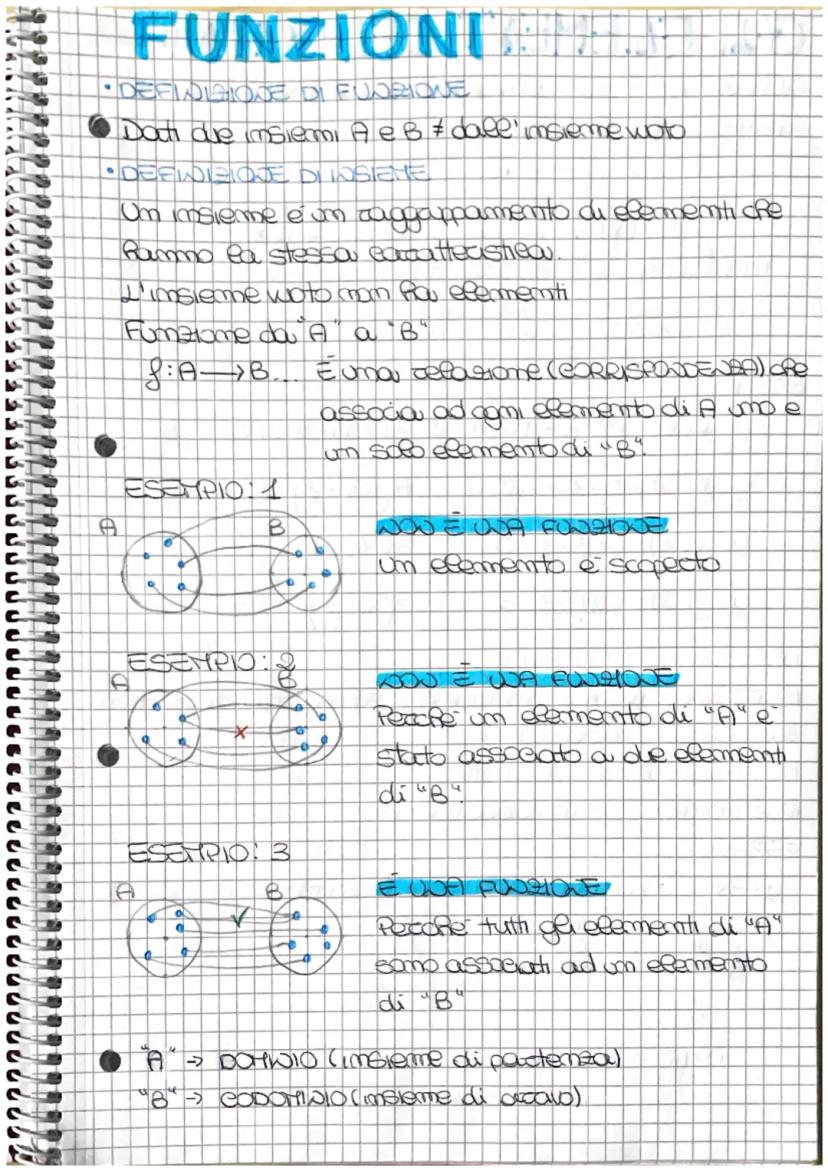 FUNZIONI
• DEFINIZIONE DI FUNZIONE
Dati due insiemi A e B ≠ dall'insieme vuoto
• DEFINIZIONE DI INSIEME
Un insieme è un raggruppamento di elementi che
hanno la stessa caratteristica.
L'insieme vuoto non ha elementi
Funzione da "A" a "B"
f: A → B... È una relazione (CORRISPONDENZA) che
associa ad ogni elemento di A uno e
un solo elemento di "B".
ESEMPIO: 1
A B NON È UNA FUNZIONE
un elemento è scoperto
ESEMPIO: 2
A B NON È UNA FUNZIONE
Perché un elemento di "A" è
stato associato a due elementi
di "B".
ESEMPIO: 3
A B È UNA FUNZIONE
Perché tutti gli elementi di "A"
sono associati ad un elemento
di "B"
"A" → DOMINIO (insieme di partenza)
"B" → CODOMINIO (insieme di arrivo)